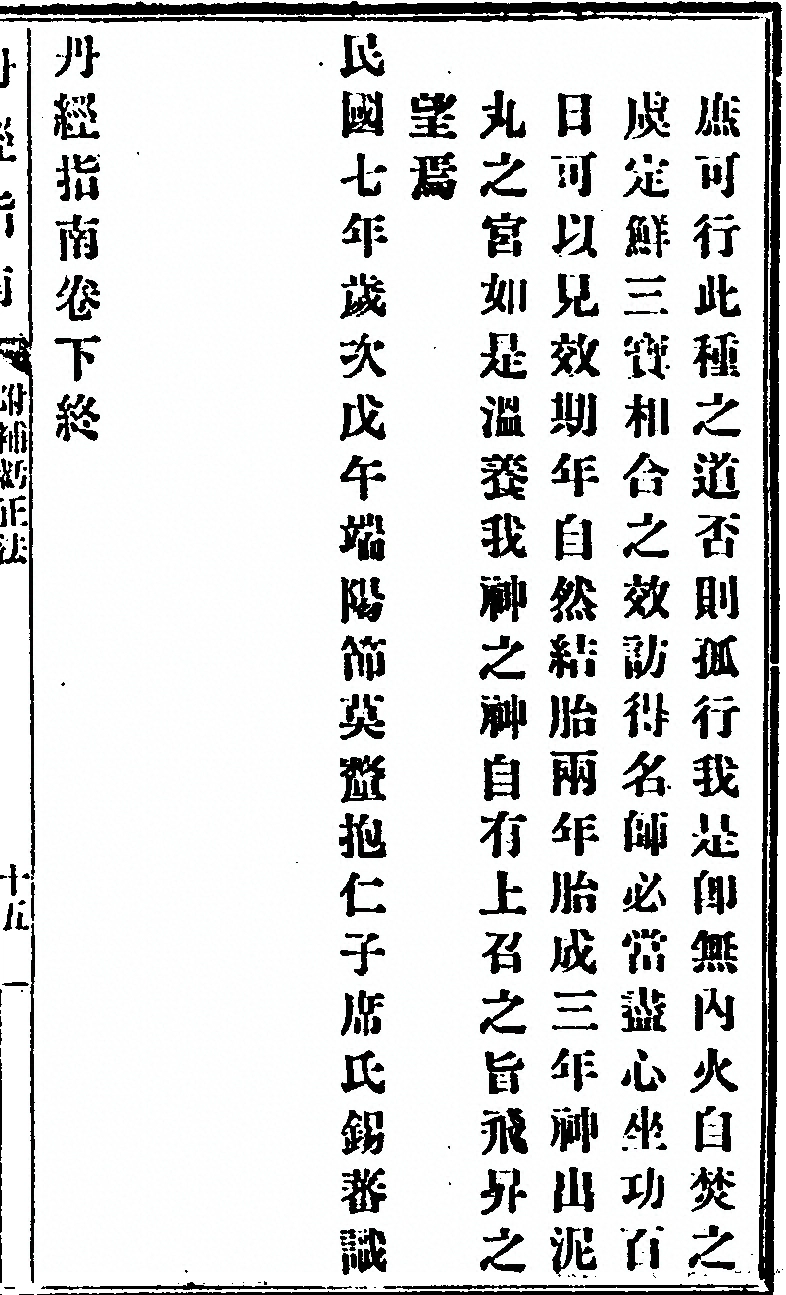 庶可行此種之道否則孤行我是卽無內火自焚之
虞定鮮三寶相合之效訪得名師必當盡心坐功百
日可以見效期年自然結胎兩年胎成三年神出泥
丸之宮如是溫養我神之神自有上召之旨飛昇之
望焉
民國七年歲次戊午端陽節莫釐抱仁子席氏錫蕃識
丹經指南卷下終
丹經指南
附補虧正法
十五